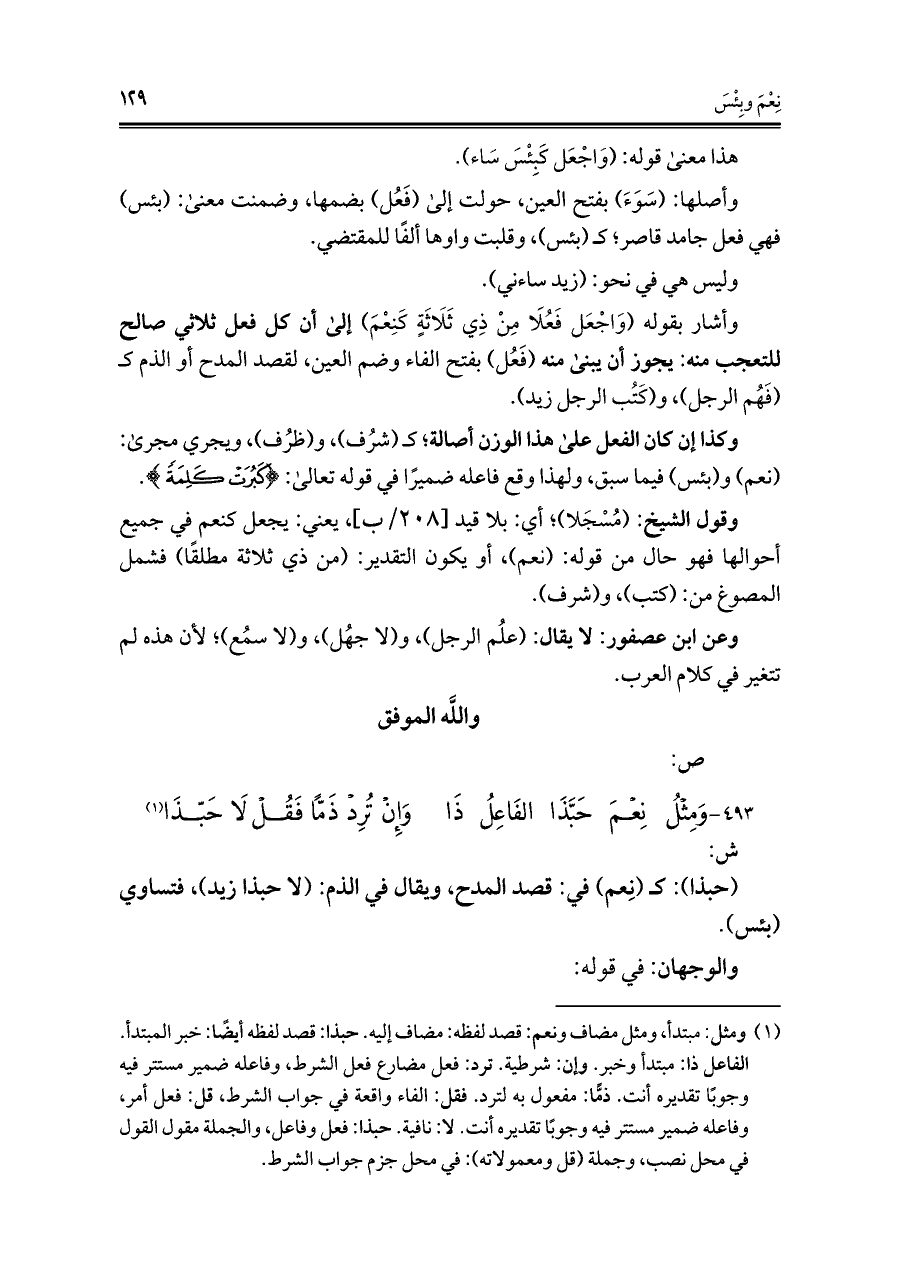 نِعْمَ وبِئْسَ ١٢٩
هذا معنىٰ قوله: (وَاجْعَل كَبِئْسَ سَاء).
وأصلها: (سَوَءَ) بفتح العين، حولت إلىٰ (فَعُل) بضمها، وضمنت معنىٰ: (بئس)
فهي فعل جامد قاصر؛ كـ (بئس)، وقلبت واوها ألفًا للمقتضي.
وليس هي في نحو: (زيد ساءني).
وأشار بقوله (وَاجْعَل فَعُلَا مِنْ ذِي ثَلَاثَةٍ كَنِعْمَ) إلىٰ أن كل فعل ثلاثي صالح
للتعجب منه: يجوز أن يبنىٰ منه (فَعُل) بفتح الفاء وضم العين، لقصد المدح أو الذم كـ
(فَهُم الرجل)، و(كَتُب الرجل زيد).
وكذا إن كان الفعل علىٰ هذا الوزن أصالة؛ كـ (شرُف)، و(ظرُف)، ويجري مجرىٰ:
(نعم) و(بئس) فيما سبق، ولهذا وقع فاعله ضميرًا في قوله تعالىٰ: ﴿كَبُرَتْ كَلِمَةً﴾.
وقول الشيخ: (مُسْجَلا)؛ أي: بلا قيد [٢٠٨/ ب]، يعني: يجعل كنعم في جميع
أحوالها فهو حال من قوله: (نعم)، أو يكون التقدير: (من ذي ثلاثة مطلقًا) فشمل
المصوغ من: (كتب)، و(شرف).
وعن ابن عصفور: لا يقال: (علُم الرجل)، و(لا جهُل)، و(لا سمُع)؛ لأن هذه لم
تتغير في كلام العرب.
واللَّه الموفق
ص:
٤٩٣-وَمِثْلُ نِعْمَ حَبَّذَا الفَاعِلُ ذَا وَإِنْ تُرِدْ ذَمًّا فَقُلْ لَا حَبَّذَا(١)
ش:
(حبذا): كـ (نِعم) في: قصد المدح، ويقال في الذم: (لا حبذا زيد)، فتساوي
(بئس).
والوجهان: في قوله:
(١) ومثل: مبتدأ، ومثل مضاف ونعم: قصد لفظه: مضاف إليه. حبذا: قصد لفظه أيضًا: خبر المبتدأ.
الفاعل ذا: مبتدأ وخبر. وإن: شرطية. ترد: فعل مضارع فعل الشرط، وفاعله ضمير مستتر فيه
وجوبًا تقديره أنت. ذمًّا: مفعول به لترد. فقل: الفاء واقعة في جواب الشرط، قل: فعل أمر،
وفاعله ضمير مستتر فيه وجوبًا تقديره أنت. لا: نافية. حبذا: فعل وفاعل، والجملة مقول القول
في محل نصب، وجملة (قل ومعمولاته): في محل جزم جواب الشرط.